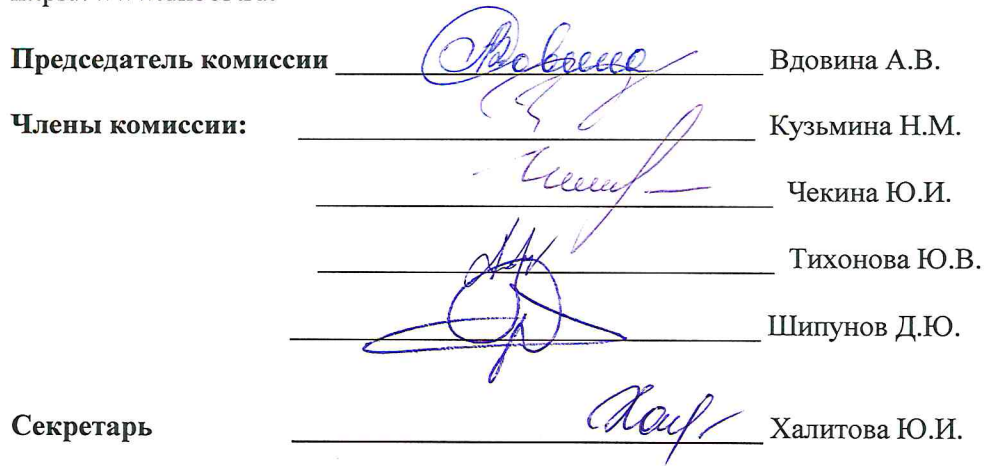 Председатель комиссии Вдовина А.В.
Члены комиссии: Кузьмина Н.М.
Чекина Ю.И.
Тихонова Ю.В.
Шипунов Д.Ю.
Секретарь Халитова Ю.И.